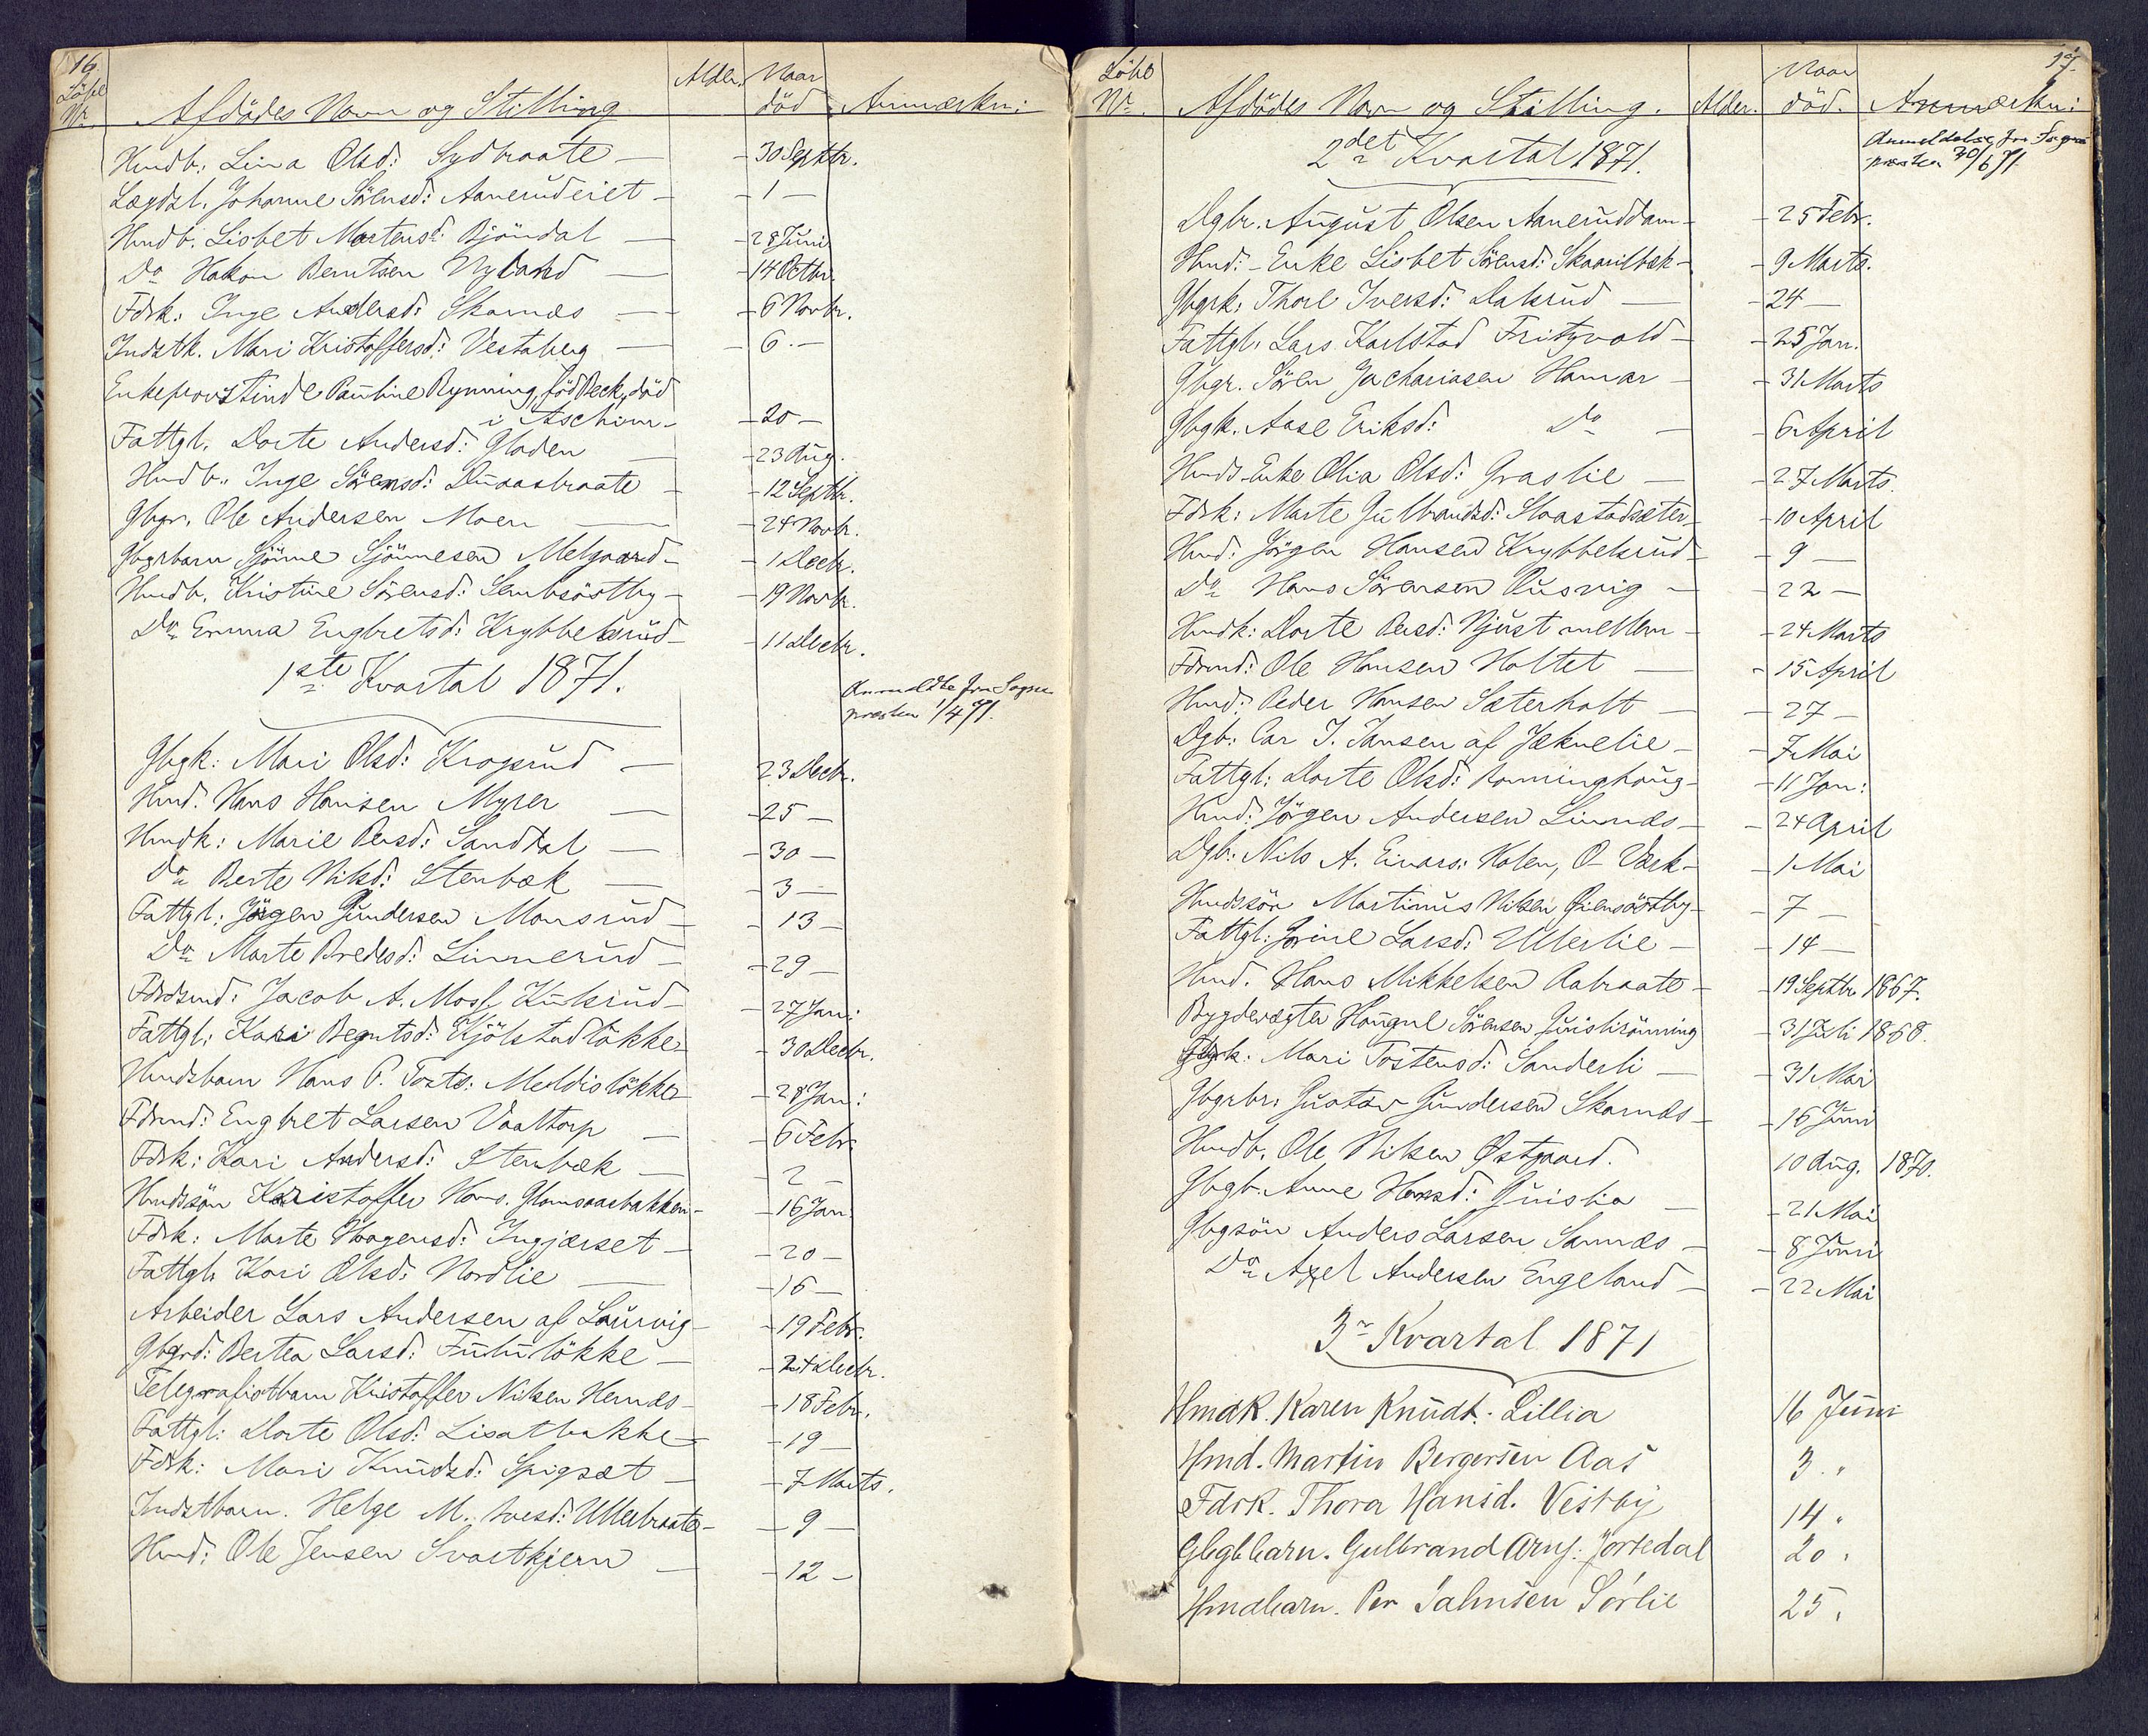 16
Löbe
Nr.
Afdödes Navn og Stilling
Alder.
Naar
död
Anmærkn:
Hmdb. Lina Olsd: Sydbraate — 30 Septbr.
Lægdsl. Johanne Sörensd: Aanerudeiet — 1 —
Hmdb. Lisbet Mortensd: Bjöndal — 28 Juni
Do Hakon Berntsen Nyland — 14 Octbr.
Fdrk: Inge Andersd: Skarnæs — 6 Novbr.
Indstk. Mari Kristoffersd: Vestaberg — 6. —
Enkeprovstinde Pauline Rynning, född Beck, död
i Aschim — 20 —
Fattgl. Dorte Andersd: Gladen — 23 Aug.
Hmdb. Inge Sörensd: Duaasbraate — 12 Septbr.
Gbgr. Ole Andersen Moen — 24 Novbr.
Gbgrbarn Sjönne Sjönnesen Melgaard — 1 Decbr.
Hmdb. Kristine Sörensd: Sembsöstby — 19 Novbr.
Do Emma Engbretsd: Krybbelsrud — 11 Decbr.
1ste Kvartal 1871.
Anmeldte fra Sogne-
præsten 1/4 71.
Gbgk: Mari Olsd: Krogsrud — 23 Decbr.
Hmd. Hans Hansen Myrer — 25 —
Hmdk: Marie Persd: Sanddal — 30 —
Do Berte Nilsd: Stenbæk — 3 —
Fattgl: Jörgen Gundersen Monsrud — 13 —
Do Marte Bredesd: Linnerud — 29 —
Fdrdsmd: Jacob A. Moss Kulsrud — 27 Jan:
Fattgl: Kari Berntsd: Kjölstadlökke — 30 Decbr.
Hmdsbarn Hans P. Torsts: Melldislökke — 28 Jan:
Fdrmd: Engbret Larsen Vaaltorp — 6 Febr.
Fdrk: Kari Andersd: Stenbæk — 2 —
Hmdssön Kristoffer Hans. Glomsaasbakken — 16 Jan.
Fdrk: Marte Haagensd: Ingjærset — 20 —
Fattgl. Kari Olsd: Nordlie — 16 —
Arbeider Lars Andersen af Laurvig — 19 Febr.
Gbgrd: Bertea Larsd: Fulülökke — 24 Decbr.
Telegrafistbarn Kristoffer Nilsen Hernæs — 18 Febr.
Fattgl: Dorte Olsd: Lisatbakke — 19 —
Fdrk: Mari Knudsd: Spigsæt — 7 Marts.
Indstbarn. Helge M. Ivesd: Ullerbraate — 9 —
Hmd: Ole Jensen Svartkjern — 12 —
17.
Löbe
Nr.
Afdödes Navn og Stilling.
Alder.
Naar
död.
Anmærkn:
2det Kvartal 1871.
Anmeldelse fra Sogne-
præsten 30/6 71.
Dgbr. August Olsen Aaneruddam — 25 Febr.
Hmd:-Enke Lisbet Sörensd: Skaarilbæk — 9 Marts.
Gbgrk: Thore Iversd: Dalsrud — 24 —
Fattgl. Lars Karlstad Fritzvold — 25 Jan.
Gbgr. Sören Zachariasen Hamar — 31 Marts
Gbgk. Aase Eriksd: Do — 6 April
Hmds-Enke Olia Olsd: Graslie — 27 Marts.
Fdrk: Marte Gulbrandsd: Skaastadsæter — 10 April
Hmd: Jörgen Hansen Krybbelsrud — 9 —
Do Hans Sörensen Dusvig — 22 —
Hmdk: Dorte Persd: Njust mellem — 24 Marts
Fdrmd: Ole Hansen Holtet — 15 April
Hmd: Peder Hansen Sæterholt — 27 —
Dgb: Car J. Jansen af Jæknelie — 7 Mai
Fattgl: Dorte Olsd: Ronninghaug — 11 Jan:
Hmd: Jörgen Andersen Linnæs — 24 April
Dgb: Nils A. Einars: Kolen, O- Værk — 1 Mai
Hmdssön Martinus Nilsen Öiensöstby — 7 —
Fattgl: Jorine Larsd: Ullerlie — 14 —
Hmd. Hans Mikkelsen Aabraate — 19 Septbr. 1867.
Bygdevægter Hougul Sörensen Guislirönning 31 Juli 1868.
Gbgrk: Mari Tostensd: Sanderli — 31 Mai
Gbgrbr: Gustav Gundersen Skarnæs — 16 Juni
Hmdb. Ole Nilsen Østgaard. 10 Aug. 1870.
Gbgb. Anne Hansd: Guislia — 21 Mai
Gbgsön Anders Larsen Sannæs — 8 Juni
Do Axel Andersen Engeland — 22 Mai
3r Kvartal 1871
Hmdk. Karen Knudt. Lillia 16 Juni
Hmd. Martin Bergersen Aas 3. "
Fdrk. Thora Hansd. Vestby 14 "
Gbgbbarn. Gulbrand Arns. Jortedal 20 "
Hmdbarn. Per Salmsen Sörlie 25 "